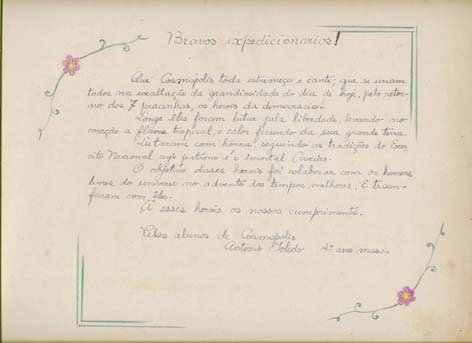 Bravos expedicionarios!
Que Cosmopolis toda estremeça e cante; que se unam
todos na exaltação da grandiosidade do dia de hoje, pelo retor-
no dos 7 pracinhas, os herois da democracia.
Longe eles foram lutar pela liberdade levando no
coração a flama tropical, o calor fecundo da sua grande terra.
Lutaram com honra, seguindo as tradições do Exer-
cito Nacional, cujo patrono é o imortal Caxias.
O objetivo desses herois foi colaborar com os homens
livres do universo no advento dos tempos melhores. E triun-
faram com eles.
A esses herois os nossos cumprimentos.
Pelos alunos de Cosmopolis
Antonio Toledo 4º ano masc.